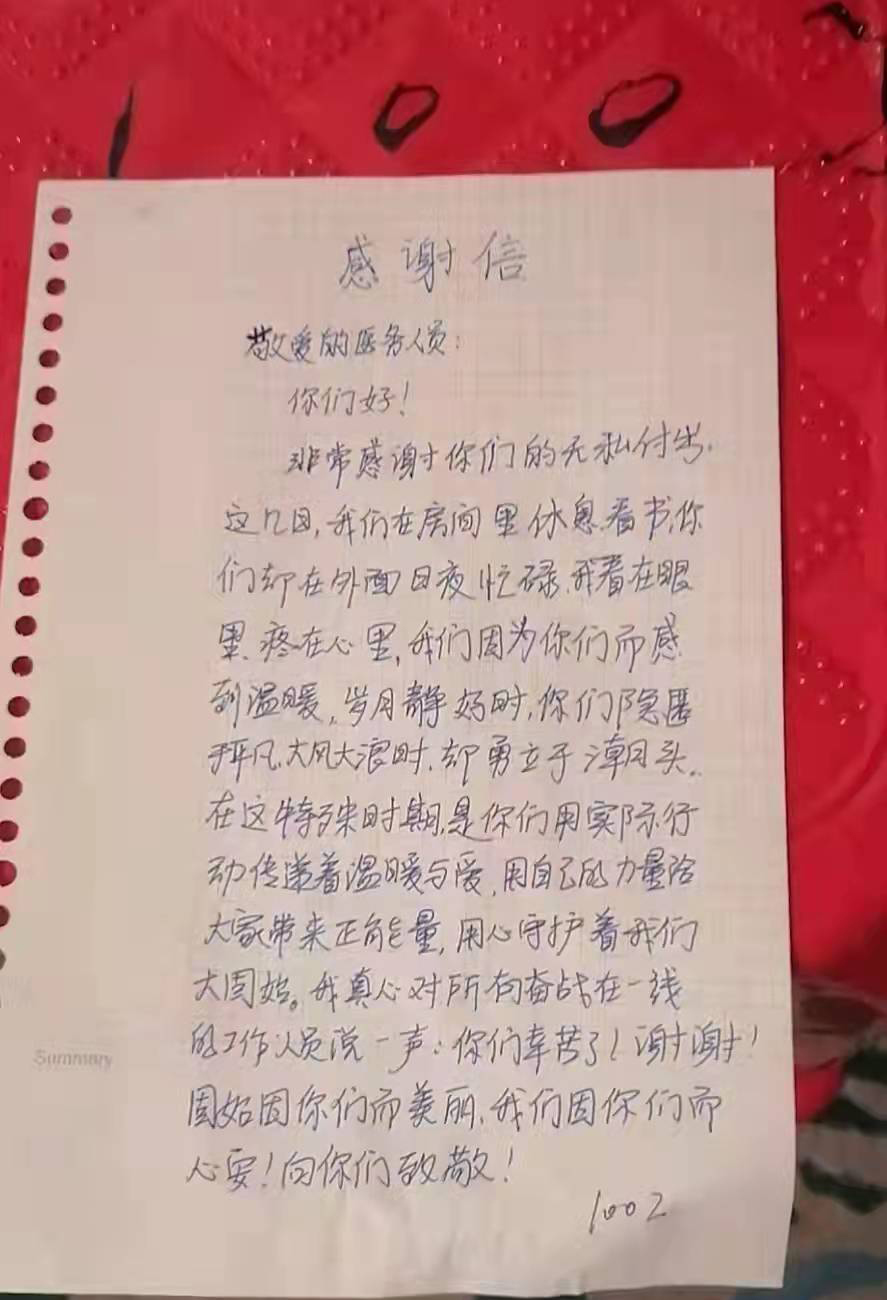 100
感谢信
敬爱的医务人员：
你们好！
非常感谢你们的无私付出.
这几日,我们在房间里休息看书,你
们却在外面日夜忙碌.我看在眼
里.疼在心里,我们因为你们而感
到温暖,岁月静好时,你们隐匿
平凡.大风大浪时.却勇立于潮头.
在这特殊时期,是你们用实际行
动传递着温暖与爱,用自己的力量给
大家带来正能量,用心守护着我们
大固始。我真心对所有奋战在一线
的工作人员说一声：你们辛苦了！谢谢！
固始因你们而美丽.我们因你们而
心安！向你们致敬！
1002
Summary